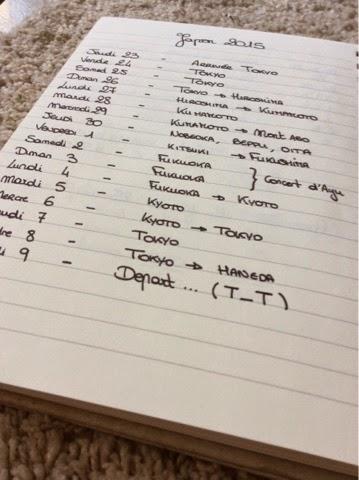 Japon 2015
Jeudi 23 - Arrivée Tokyo
Vendre 24 - Tokyo
Samed 25 - Tokyo
Diman 26 - Tokyo → Hiroshima
Lundi 27 - Hiroshima → Kumamoto
Mardi 28 - Kumamoto
Mercredi 29 - Kumamoto → Mont Aso
Jeudi 30 - Nobeoka, Beppu, Oita
Vendredi 1 - Kitsuki → Fukushima
Samedi 2 - Fukuoka
Diman 3 - Fukuoka } Concert d'Ayu
Lundi 4 - Fukuoka → Kyoto
Mardi 5 - Kyoto
Mercre 6 - Kyoto → Tokyo
udi 7 - Tokyo
dre 8 - Tokyo → Haneda
di 9 - Depart ... (T_T)